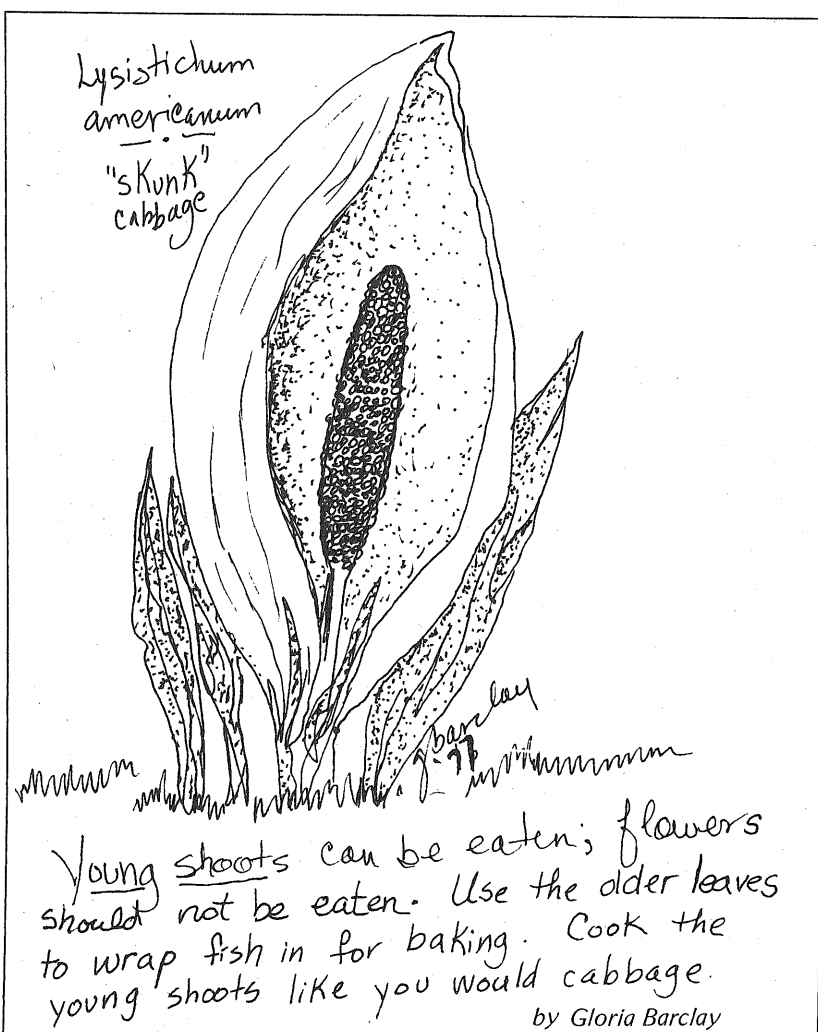 Lysistichum
americanum
"skunk"
cabbage
g barclay
- 77
Young shoots can be eaten; flowers
should not be eaten. Use the older leaves
to wrap fish in for baking. Cook the
young shoots like you would cabbage.
by Gloria Barclay